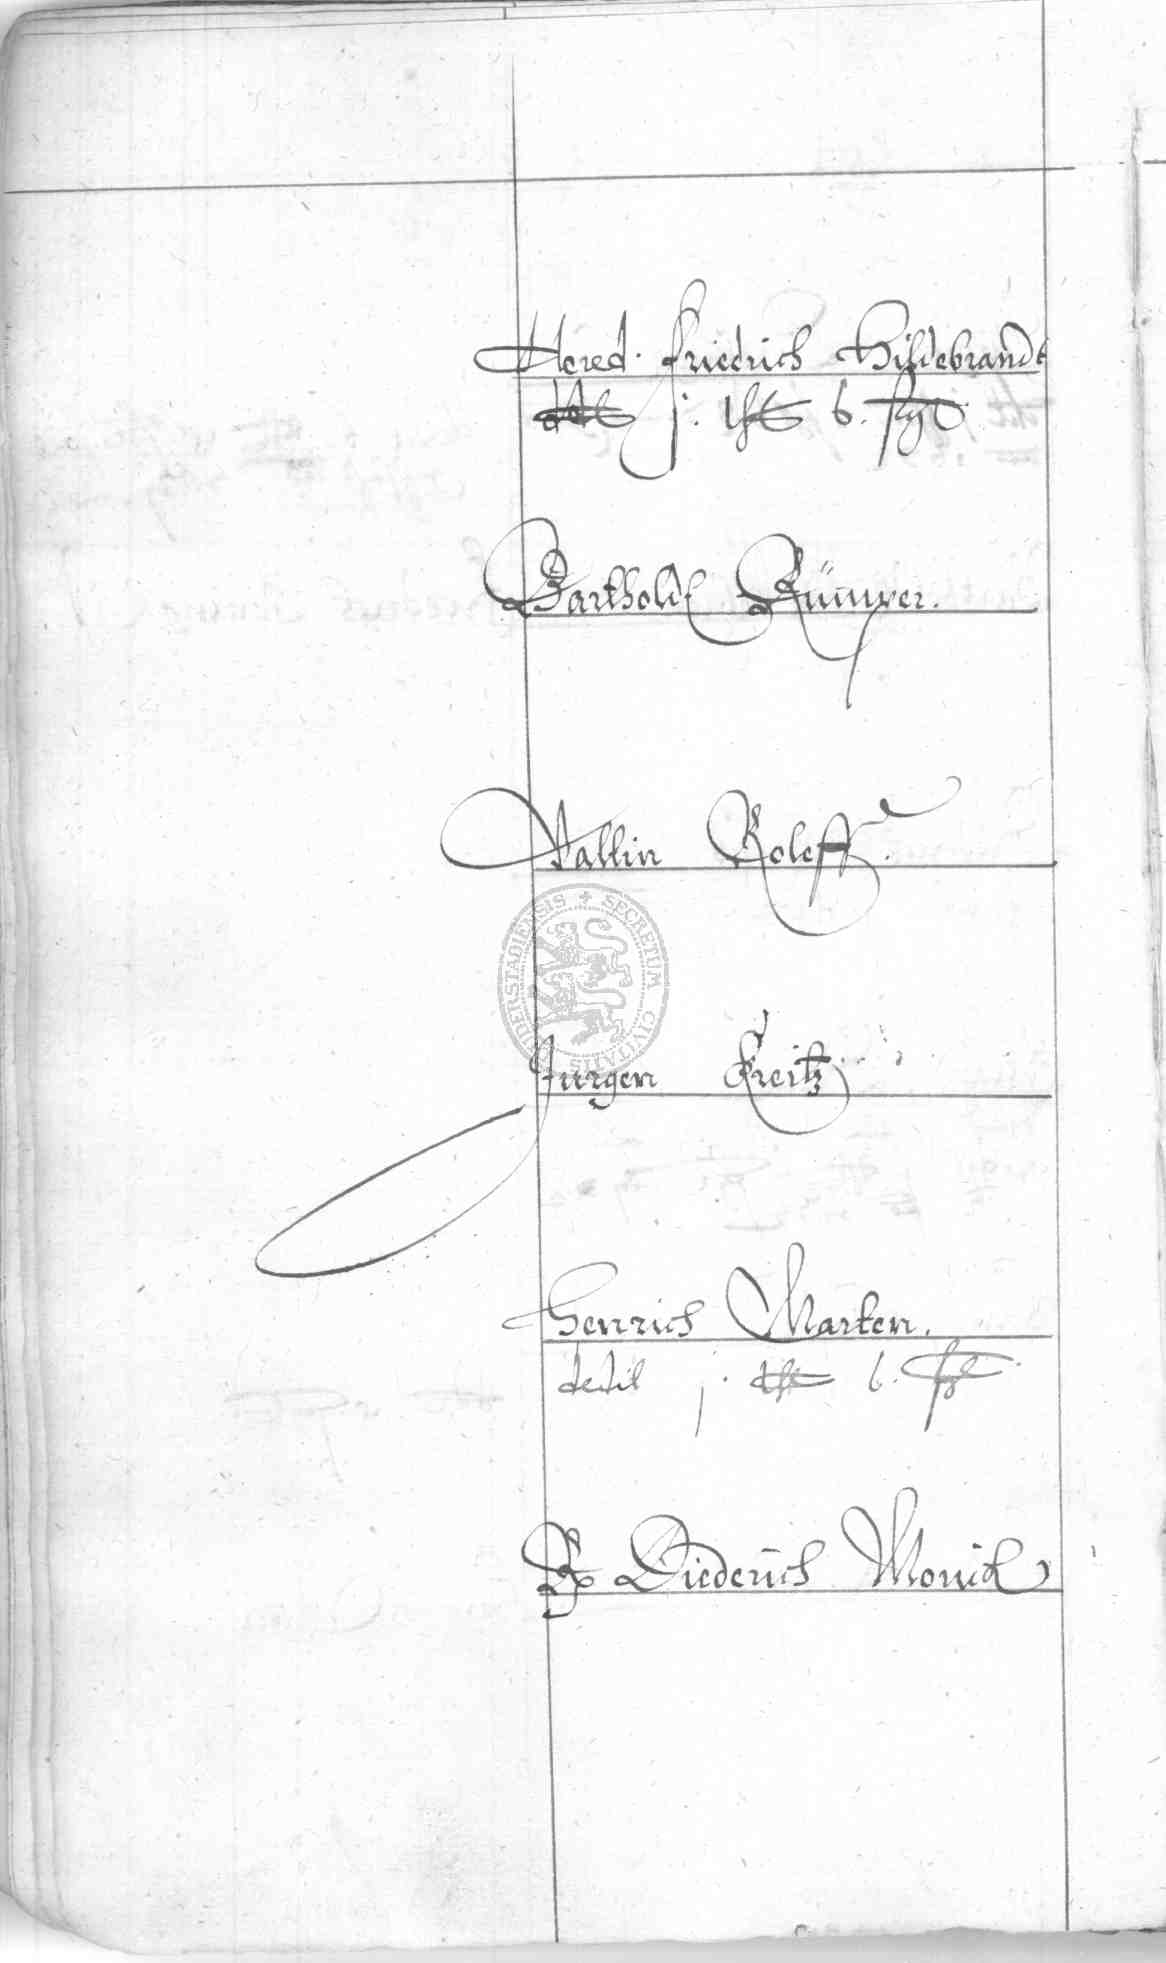 Hered. Friedrich Hildebrandt
dedit j. thlr 6. ßgl
Barthold Rümper.
Vallin Roleff.
SECRETUM CIVITATIS DUDERSTADIENSIS
Jurgen Kreitz
Henrich Marken.
dedit j. thlr 6. ßgl.
Diederich Monich